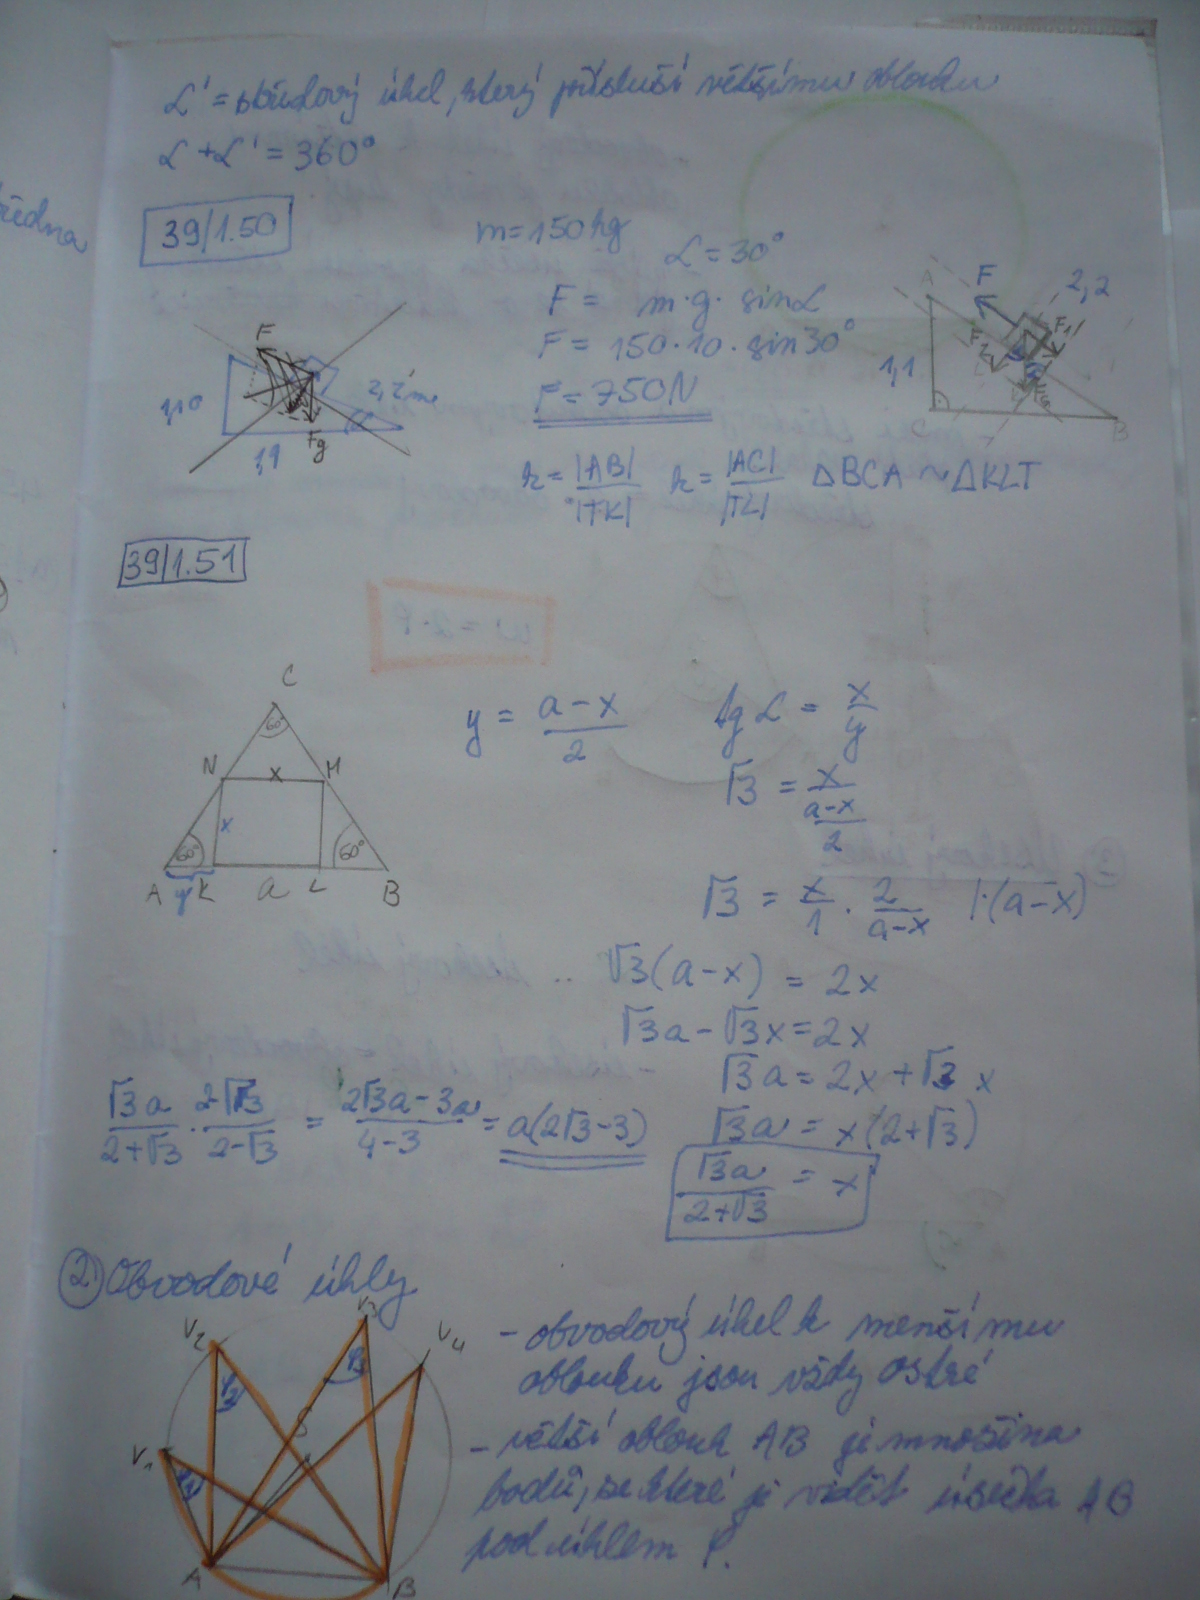 ředna
α' = středový úhel, který přísluší většímu oblouku
α + α' = 360°
39/1.50
m = 150 kg
α = 30°
F = m·g·sinα
F = 150·10·sin30°
F = 750N
F
Fg
2,2 m
1,1
A
F
2,2
1,1
C
B
k = |AB|/|TK| k = |AC|/|TL| △BCA ~ △KLT
39/1.51
C
60°
N x M
x
60° 60°
A y K a L B
y = (a-x)/2
tg α = x/y
√3 = x/((a-x)/2)
√3 = x/1 · 2/(a-x) |·(a-x)
√3(a-x) = 2x
√3a - √3x = 2x
√3a = 2x + √3 x
√3a = x(2+√3)
√3a/(2+√3) = x
√3a/(2+√3) · (2-√3)/(2-√3) = (2√3a-3a)/(4-3) = a(2√3-3)
2. Obvodové úhly
V₁
V₂
V₃
V₄
S
A
B
- obvodový úhel k menšímu
oblouku jsou vždy ostré
- větší oblouk AB je množina
bodů, ze které je vidět úsečka AB
pod úhlem φ.